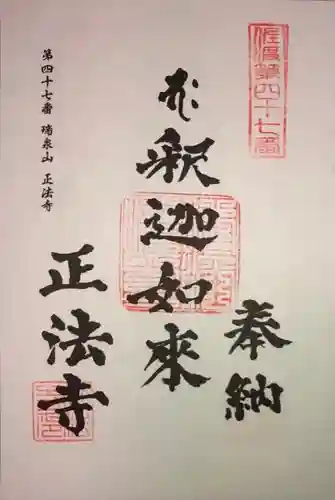 佐渡第四十七番
奉納
釈迦如来
正法寺
第四十七番 瑞泉山 正法寺